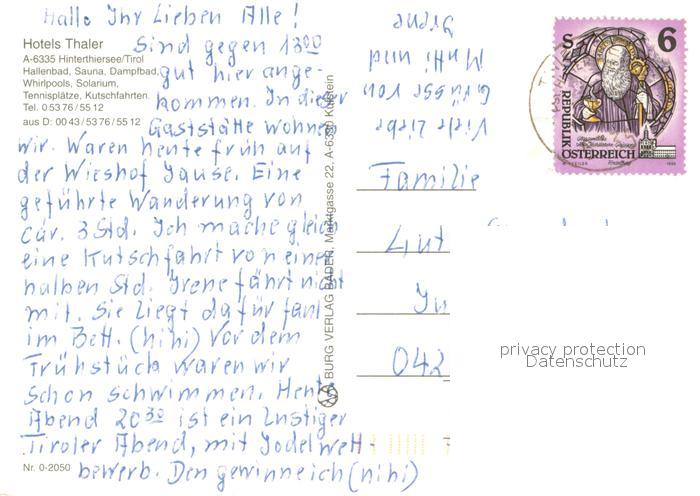 Hallo Ihr Lieben Alle!
Hotels Thaler
A-6335 Hinterthiersee/Tirol
Hallenbad, Sauna, Dampfbad,
Whirlpools, Solarium,
Tennisplätze, Kutschfahrten.
Tel. 0 53 76 / 55 12
aus D: 00 43 / 53 76 / 55 12
Sind gegen 13 00
gut hier ange-
kommen. In dieser
Gaststätte wohnen
wir. Waren heute früh auf
der Wieshof Jause. Eine
geführte Wanderung von
car. 3 Std. Ich mache gleich
eine Kutschfahrt von einer
halben Std. Irene fährt nicht
mit. Sie liegt dafür faul
im Bett. (hihi) Vor dem
Frühstück waren wir
schon schwimmen. Heute
Abend 20 30 ist ein Lustiger
Tiroler Abend, mit Jodel Wett-
bewerb. Den gewinne ich (hihi)
Nr. 0-2050
BURG VERLAG BADER, Marktgasse 22, A-6330 Kufstein
Viele liebe
Grüsse von
Mutti und
Irene
Familie
042
S
6
REPUBLIK
ÖSTERREICH
privacy protection
Datenschutz